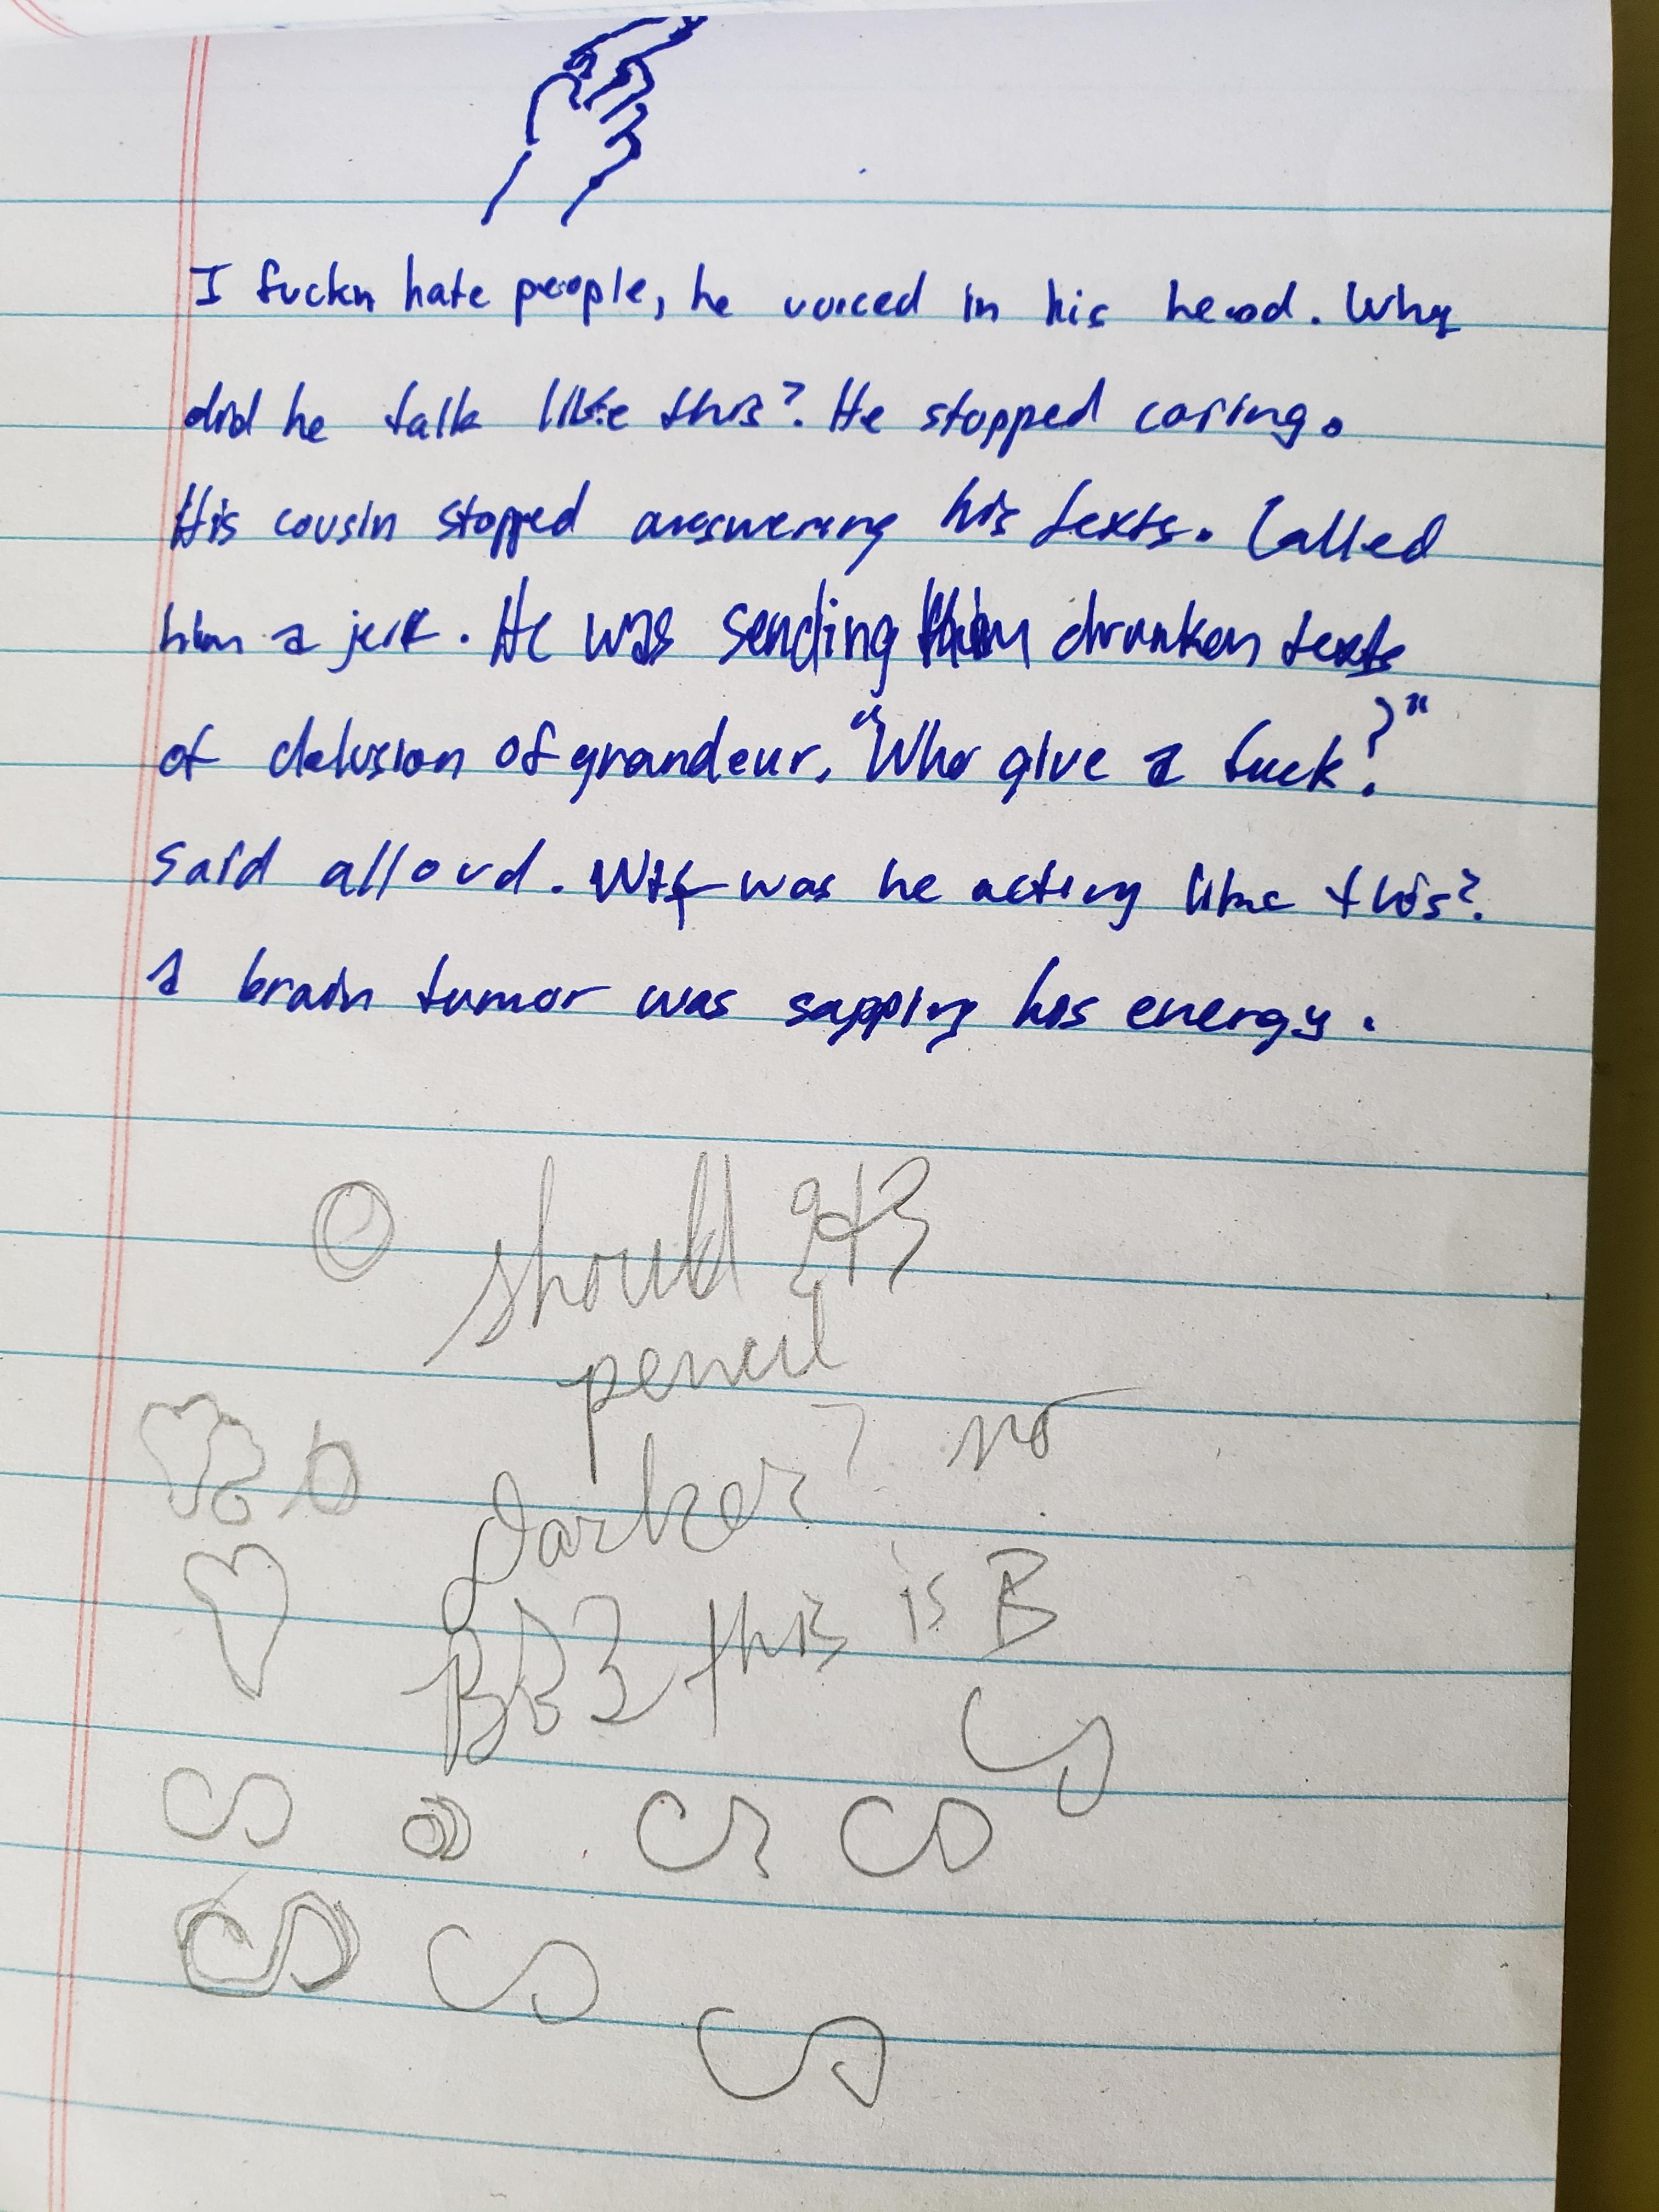 I fuckn hate people, he voiced in his head. Why
did he talk like this? He stopped caring.
His cousin stopped answering his texts. Called
him a jerk. He was sending him drunken texts
of delusion of grandeur. "Who give a fuck?"
said alloud. Wtf was he acting like this?
A brain tumor was sapping his energy.
should
pencil
darker? no
this is B